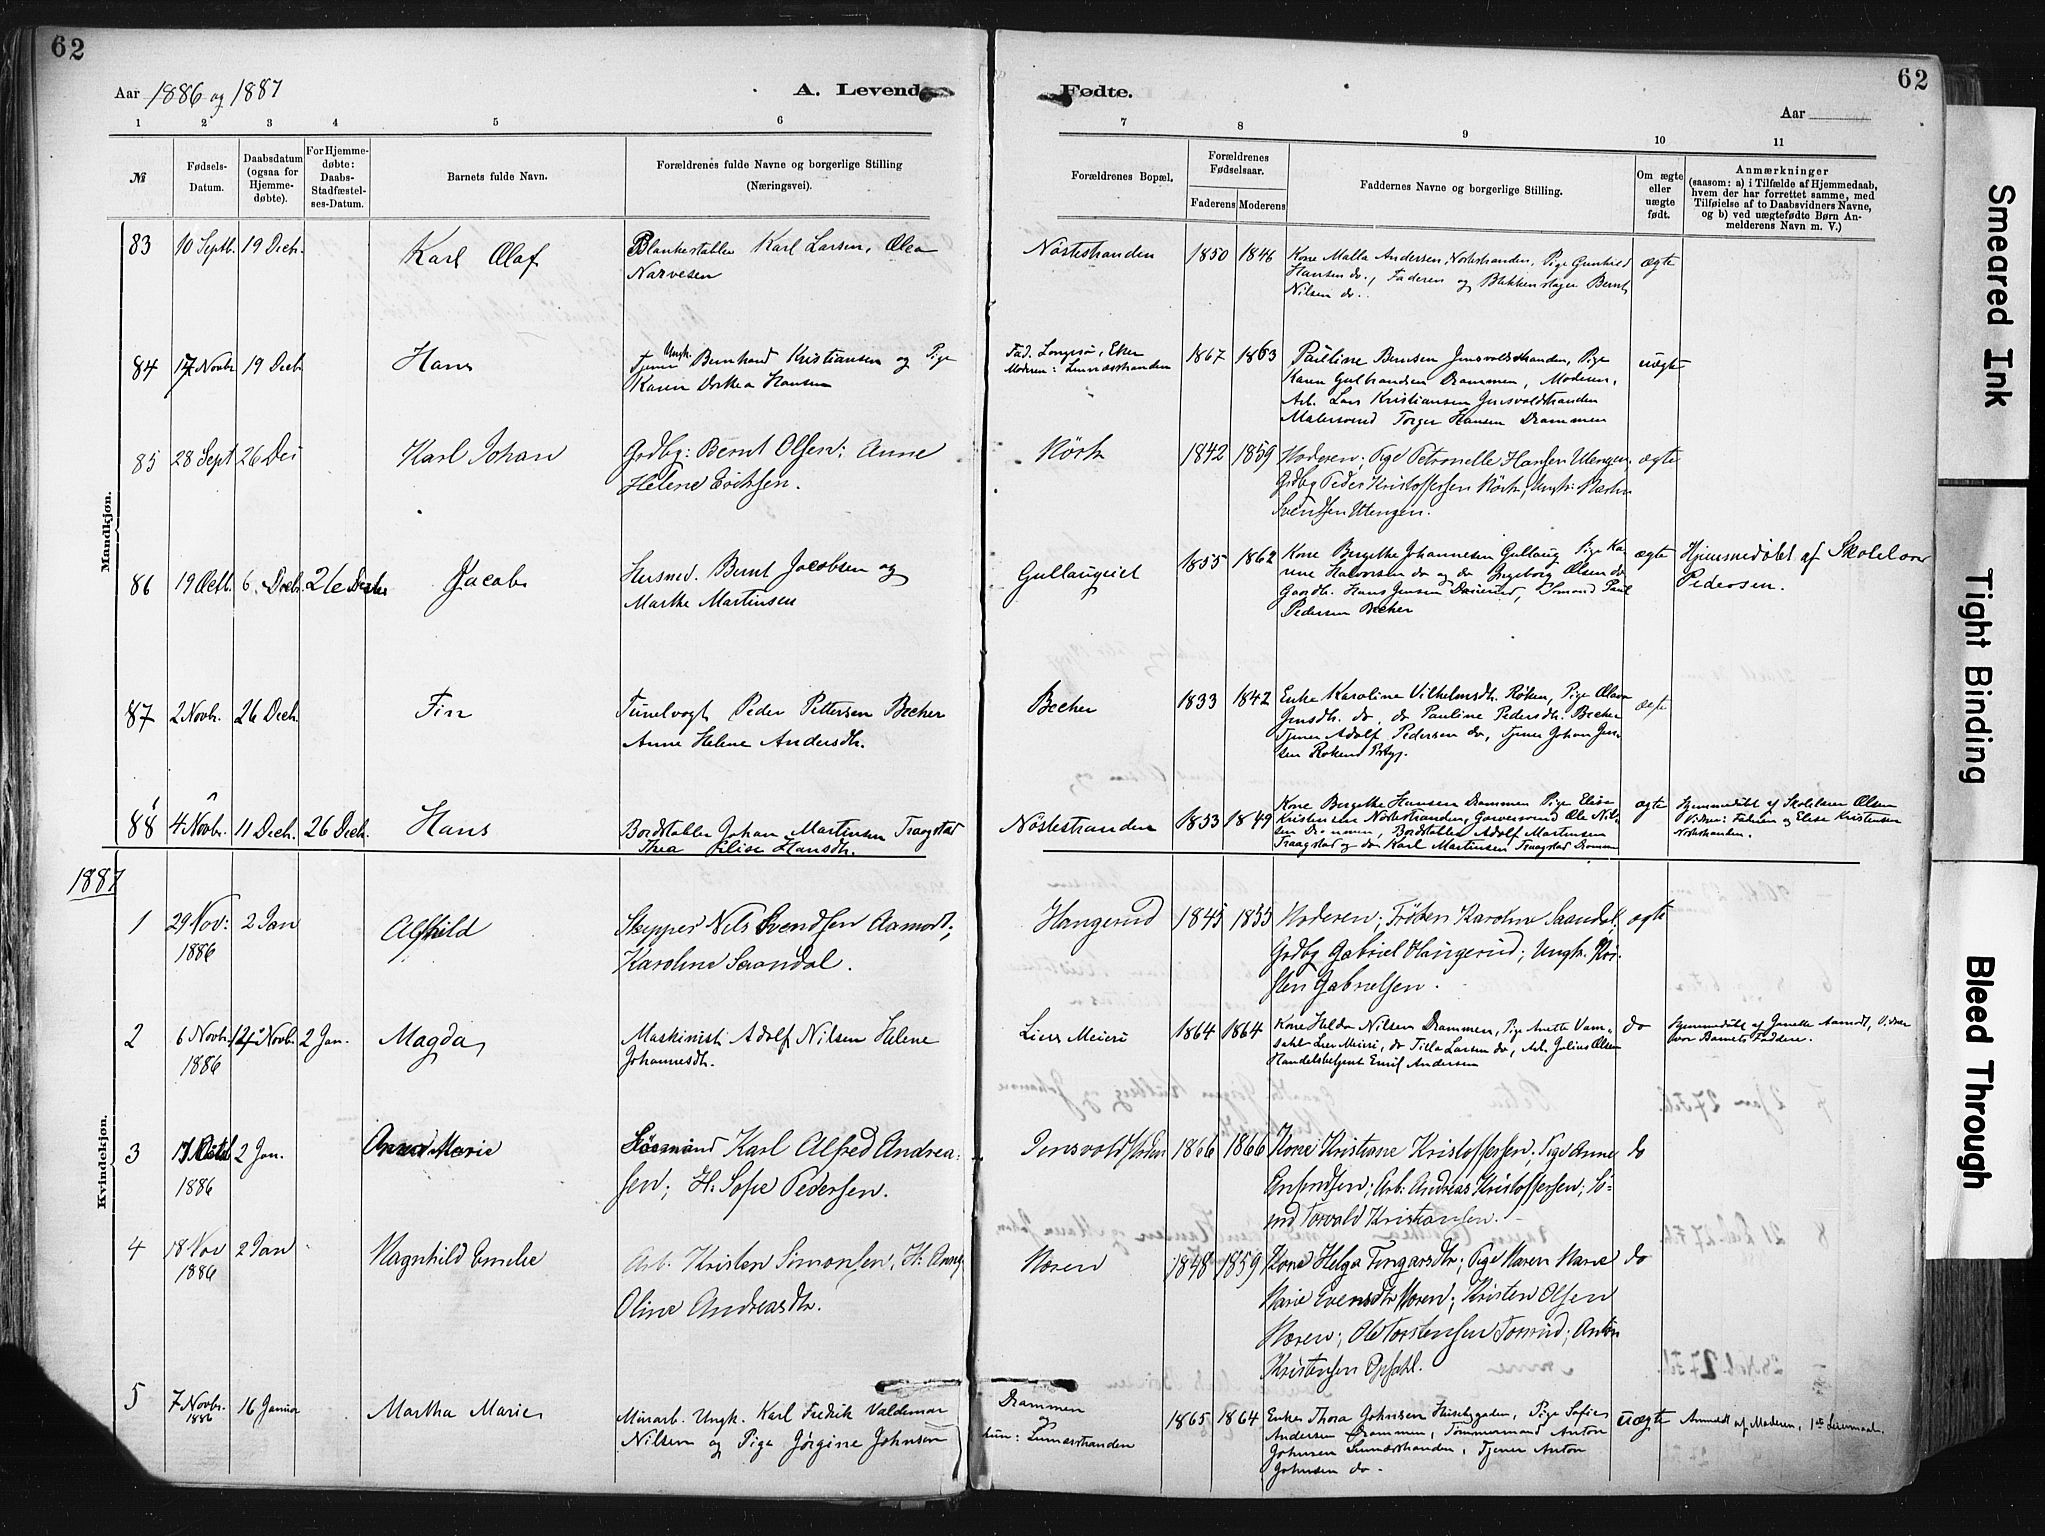 62
62
Aar 1886 og 1887
A. Levend
Fødte.
Aar
1 2 3 4 5 6 7 8 9 10 11
№
Fødsels-
Datum.
Daabsdatum
(ogsaa for
Hjemme-
døbte).
For Hjemme-
døbte:
Daabs-
Stadfæstel-
ses-Datum.
Barnets fulde Navn.
Forældrenes fulde Navne og borgerlige Stilling
(Næringsvei).
Forældrenes Bopæl.
Forældrenes
Fødselsaar.
Faderens Moderens
Faddernes Navne og borgerlige Stilling.
Om ægte
eller
uægte
født.
Anmærkninger
(saasom: a) i Tilfælde af Hjemmedaab,
hvem der har forrettet samme, med
Tilføielse af to Daabsvidners Navne,
og b) ved uægtefødte Børn An-
melderens Navn m. V.)
Mandkjøn.
83 10 Septb. 19 Decb. Karl Olaf
Karl Larsen, Olea
Narvesen
Nøstestranden 1850 1846
Kone Malla Andersen, Nøstestranden, Pige Gunhild
Hansen do., Faderen og Blikkenslager Bernt
Nilsen do.
ægte
84 17 Novbr 19 Decb Hans
Tjener Ungk. Bernhard Kristiansen og Pige
Karen Dorthea Hansen
1867 1863
Pauline Berntsen Jensvoldstranden, Pige
Karen Gulbrandsen Drammen, Moderen,
Arb. Lars Kristiansen Jensvoldstranden
Malersvend Torger Hansen Drammen
uægte
85 28 Sept 26 Dec Karl Johan
Grdbg: Bernt Olsen; Anne
Helene Eriksen.
1842 1859
Moderen; Pige Petronelle Hansen Utengen,
Grdbg Peder Kristoffersen
Svendsen Utengen.
ægte
86 19 Octb. 6 Decbr. 26 Decbr Jacob
Husmd. Bernt Jacobsen og
Marthe Martinsen
Gullaugeiet 1855 1862
Kone Bergethe Johannesen Gullaug Pige Ka-
rine Halvorsen do og do Ingeborg Olsen do
Gaardb. Hans Jensen
Pedersen Becher
ægte
Hjemmedøbt af Skolelærer
Pedersen.
87 2 Novbr. 26 Decb. Fin
Peder Pettersen Becher
Anne Helene Andersdtr.
Becher 1833 1842
Enke Karoline Vilhelmsdtr. Røken, Pige Olava
Jensdtr. do, do Pauline Pedersdtr. Becher
Tjener Adolf Pedersen do, Tjener Johan Jen-
sen
ægte
88 4 Novbr. 11 Decb. 26 Decb. Hans
Bordstabler Johan Martinsen Traagstad
Thea Elise Hansdtr.
Nøstestranden 1853 1849
Kone Bergethe Hansen Drammen Pige Elise
Kristensen Nøstestranden, Garversvend Ole Nil-
sen Drammen, Bordstabler Adolf Martinsen
Traagstad og do Karl Martinsen Traagstad Drammen
ægte
Hjemmedøbt af Skolelærer Olsen
Vidner: Faderen og Elise Kristensen
Nøstestranden.
1887
Kvindekjøn.
1 29 Nov: 1886 2 Jan Alfhild
Skipper Nils Svendsen Aamodt;
Karoline Saandal.
Haugerud 1845 1855
Moderen; Frøken Karoline Saandal;
Grdbg Gabriel Haugerud; Ungk.
Gabrielsen.
ægte
2 6 Novbr. 1886 2 Jan. Magda
Maskinist Adolf Nilsen Helene
Johannesdtr.
Liers Meieri 1864 1864
Kone Helda Nilsen Drammen, Pige Anette Vam-
Lier Meieri, do Tilla Larsen do, Arb. Julius Olsen
Handelsbetjent Emil Andersen
do
Hjemmedøbt af Janette Aamodt, Vidner
var Barnets Faddere.
3 1886 2 Jan. Anna Marie
Karl Alfred Andrea-
sen; H: Sofie Pedersen.
1866 1866
Kone Kristiane Kristoffersen; Pige Anne
Arb: Andreas Kristoffersen; Sø-
md Torvald Kristiansen.
do
4 18 Nov 1886 2 Jan Ragnhild Emelie
Arb. Kristen Simonsen; H: Anne
Oline Andreasdtr.
1848 1859
Kone Helga Pige Maren Marie
Marie Evensdtr; Kristen Olsen
Ole Torstensen; Anton
Kristensen Opsahl.
do
5 7 Novbr. 1886 16 Januar Martha Marie
Minarb. Ungk. Karl Fredik Valdemar
Nilsen og Pige Jørgine Johnsen
Drammen
og
hun: Linnæsstranden
1865 1864
Enke Thora Johnsen Huseby gaden, Pige Sofie
Andersen Drammen, Tømmermand Anton
Johnsen Linnæsstranden, Tjener Anton
Johnsen do.
uægte
Anmeldt af Moderen, 1ste Leiermaal.
Smeared Ink
Tight Binding
Bleed Through